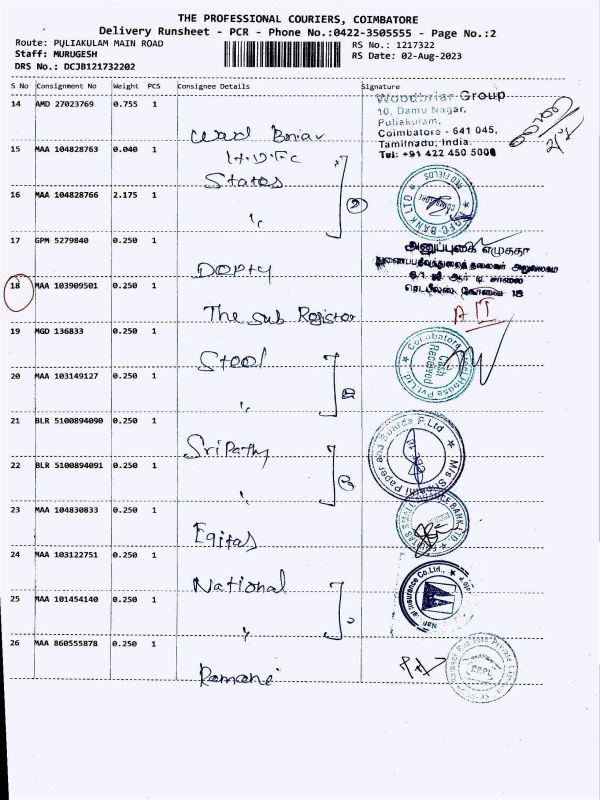 THE PROFESSIONAL COURIERS, COIMBATORE
Delivery Runsheet - PCR - Phone No.:0422-3505555 - Page No.:2
Route: PULIAKULAM MAIN ROAD
RS No.: 1217322
Staff: MURUGESH
RS Date: 02-Aug-2023
DRS No.: DCJB121732202
S No Consignment No Weight PCS Consignee Details Signature
14 AMD 27023769 0.755 1
Woodbriar Group
10, Damu Nagar,
Puliakulam,
Coimbatore - 641 045,
Tamilnadu, India.
Tel: +91 422 450 5000
Wood Briar
15 MAA 104828763 0.040 1
H.D.F.C
States
16 MAA 104828766 2.175 1
HDFC BANK LTD
RED FIELDS
COIMBATORE
17 GPM 5279840 0.250 1
DOPTY
18 MAA 103909501 0.250 1
The Sub Register
A II
19 MGD 136833 0.250 1
Steel
Coimbatore
Pvt Ltd.
Cash
Received
20 MAA 103149127 0.250 1
21 BLR 5100894090 0.250 1
Sripathy
M/s Sripathi Paper and Boards P.Ltd
22 BLR 5100894091 0.250 1
23 MAA 104830833 0.250 1
Eqitas
SMALL FINANCE BANK LTD
24 MAA 103122751 0.250 1
National
Insurance Co.Ltd.,
25 MAA 101454140 0.250 1
26 MAA 860555878 0.250 1
Ramani